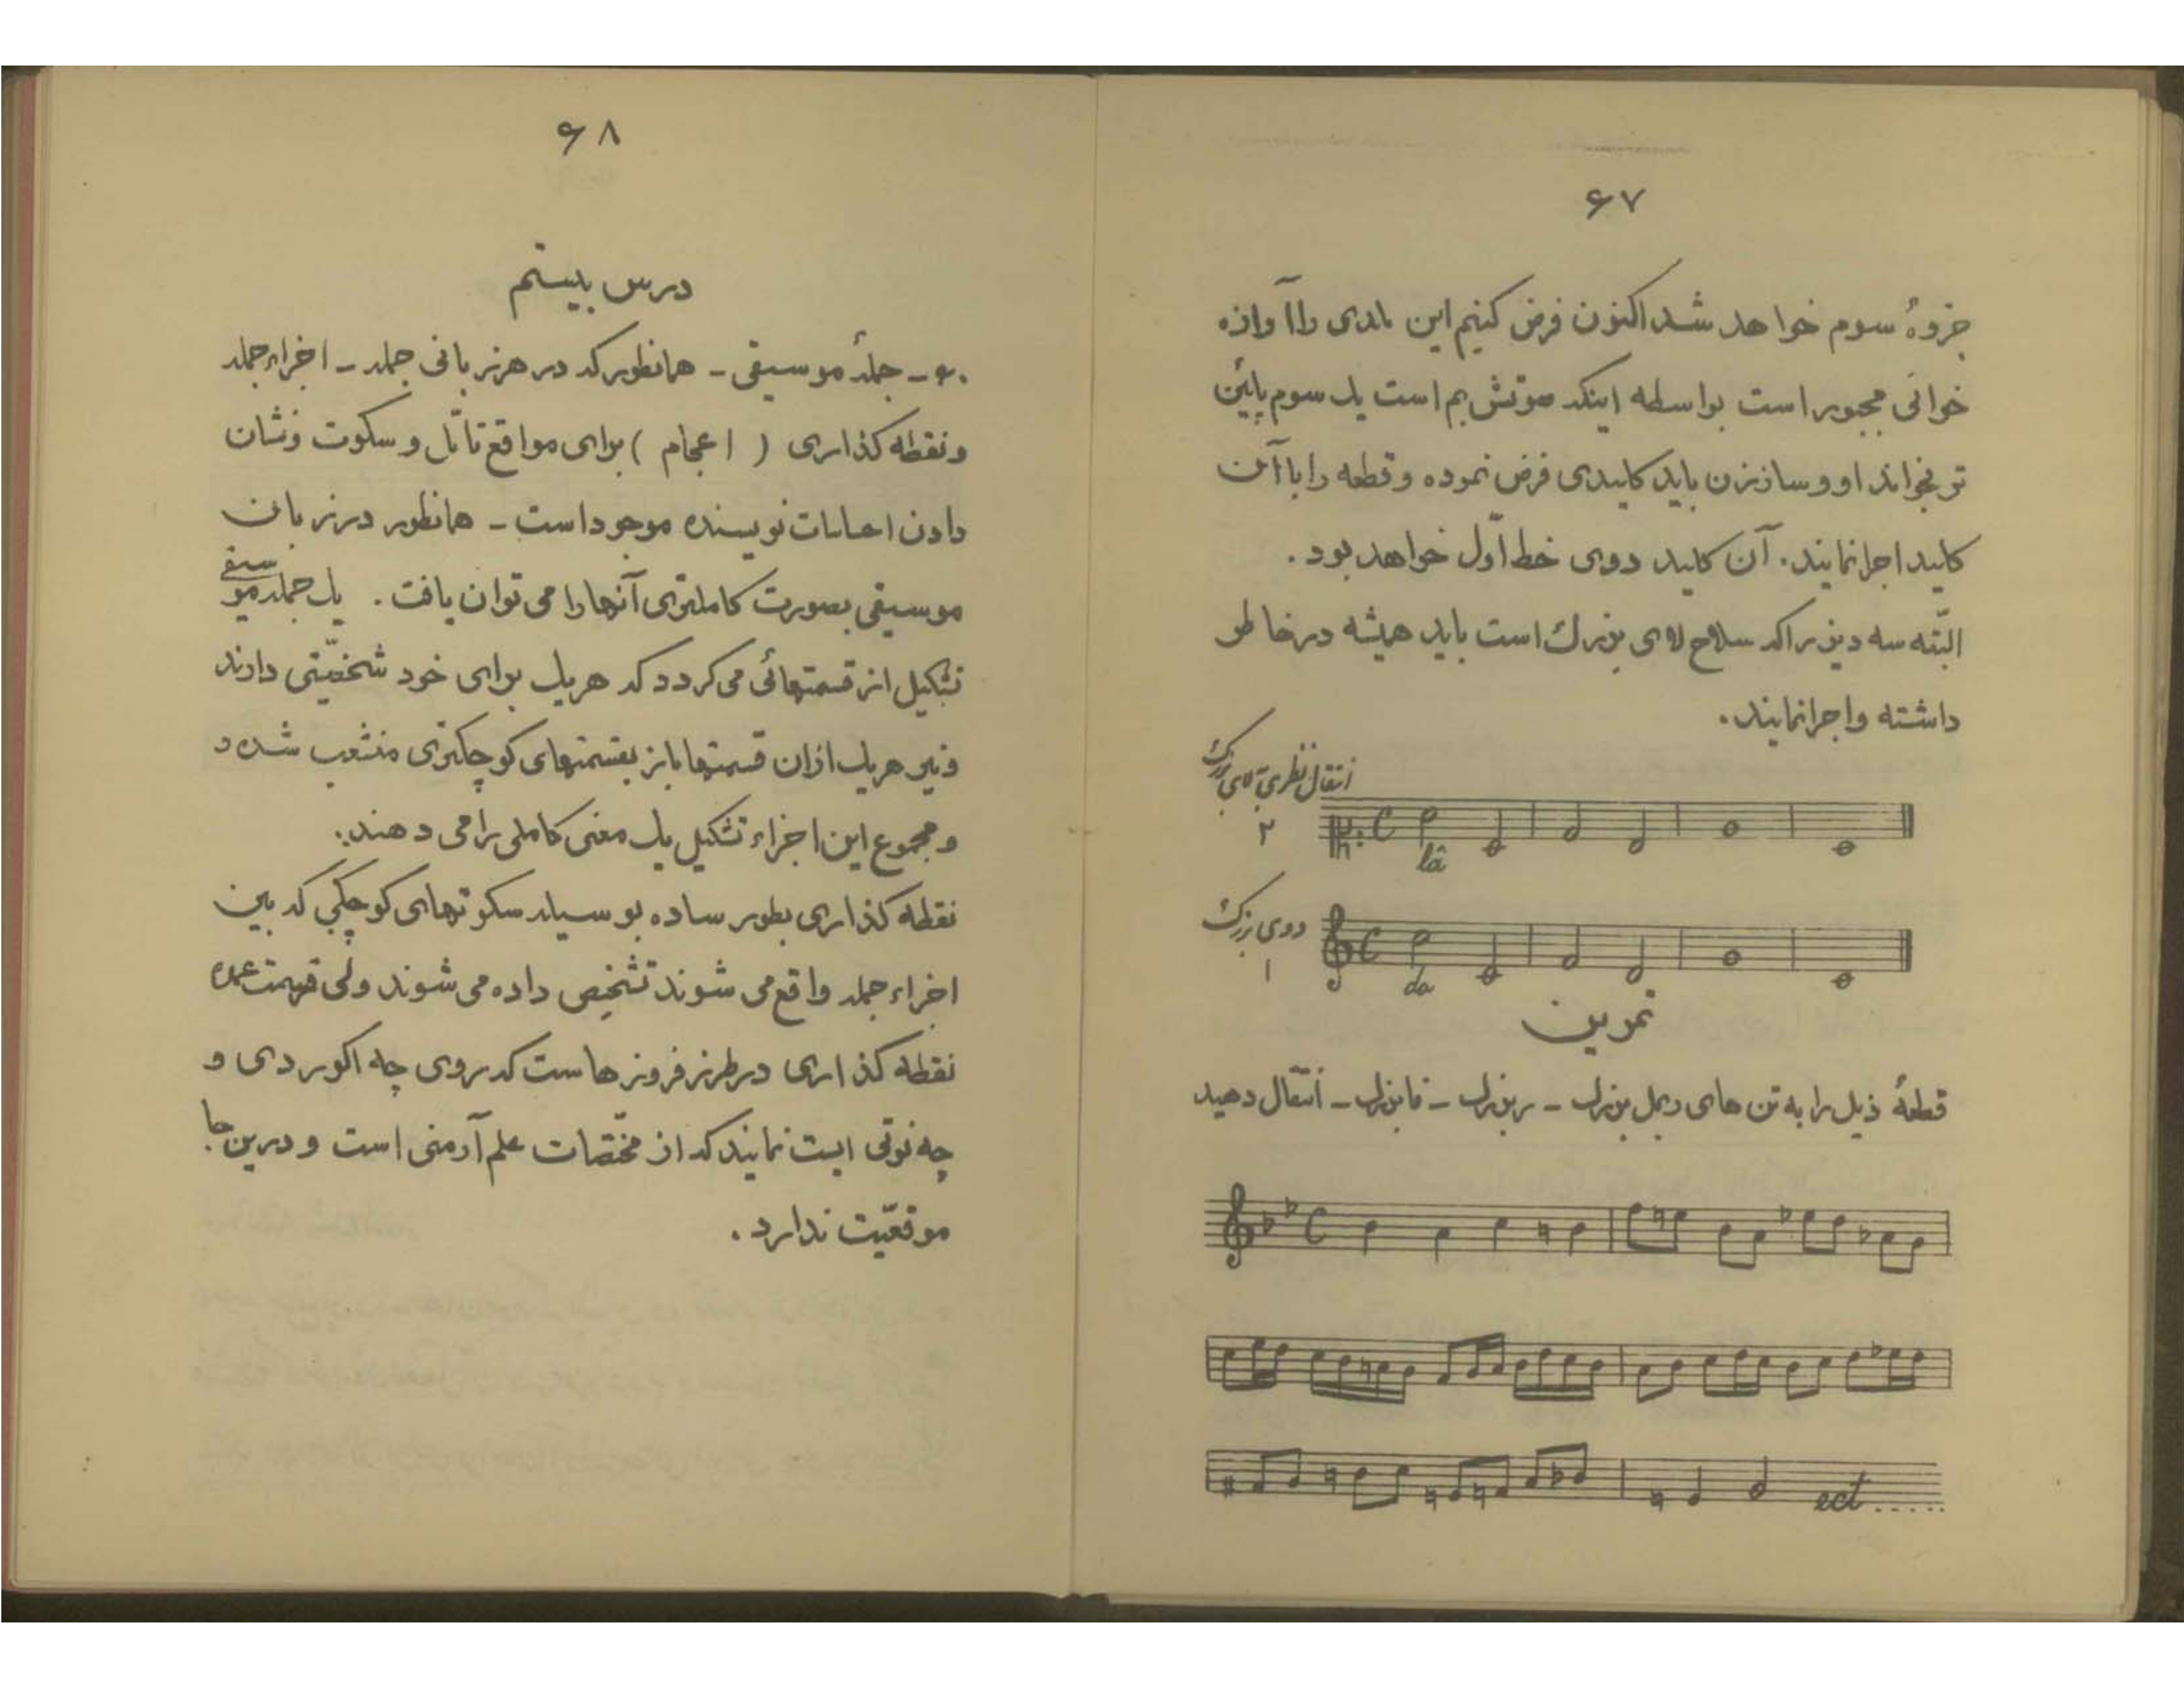 ۶۷
جزوهٔ سوم خواهد شد اکنون فرض کنیم این ملدی را آوازه
خوانی مجبور است بواسطه اینکه صوتش بم است یک سوم پایئن
تر بخواند او و سازنزن باید کلیدی فرض نموده و قطعه را با آن
کلید اجرا نمایند. آن کلید دوی خط اوّل خواهد بود.
البتّه سه دیز را که سلاح لای بزرک است باید همیشه در خاطر
داشته و اجرا نمایند.
انتقال نظری به لای بزرک
۲
la
دوی بزرک
۱
do
تمرین
قطعهٔ ذیل را به تن های ر بمل بزرک - ر بزرک - فا بزرک - انتقال دهید
ect.....
۶۸
درس بیستم
۶۰ - جملهٔ موسیقی - همانطور که در هر زبانی جمله - اجزاء جمله
و نقطه کذاری ( اعجام ) برای مواقع تأمّل و سکوت و نشان
دادن احساسات نویسنده موجود است - همانطور در زبان
موسیقی بصورت کاملتری آنها را می توان یافت. یک جمله موسیقی
تشکیل از قسمتهائی می کردد که هر یک برای خود شخصیّتی دارند
و نیز هر یک از ان قسمتها باز بقسمتهای کوچکتری منشعب شده و
و مجموع این اجزاء تشکیل یک معنی کاملی را می دهند.
نقطه کذاری بطور ساده بوسیله سکوتهای کوچکی که بین
اجزاء جمله واقع می شوند تشخیص داده می شوند ولی قسمت عمده
نقطه کذاری در طرز فرودهاست که روی چه اکوردی و
چه نوتی ایست نمایند که از مختصات علم آرمنی است و درین جا
موقعیّت ندارد.